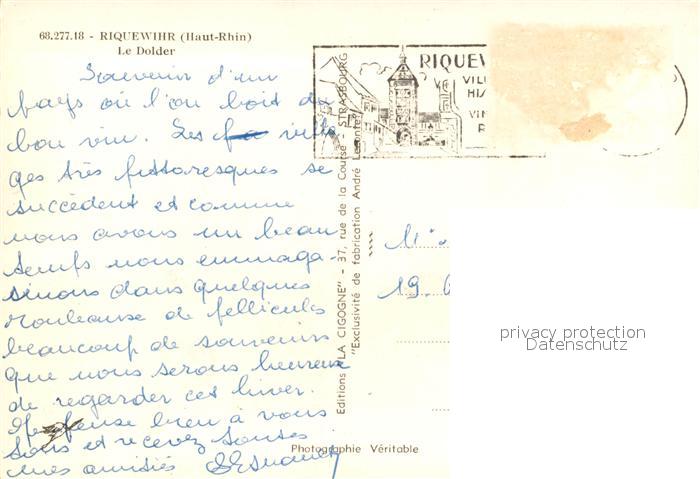 68.277.18 - RIQUEWIHR (Haut-Rhin)
Le Dolder
Souvenir d'un
pays où l'on boit du
bon vin. Les villa
ges très pittoresques se
succèdent et comme
nous avons un beau
temps nous emmaga-
sinons dans quelques
rouleaux de pellicules
beaucoup de souvenirs
que nous serons heureux
de regarder cet hiver.
Je pense bien à vous
tous et recevez toutes
mes amitiés
RIQUEW
VILL
HIS
VIN
R
Editions "LA CIGOGNE" - 37, rue de la Course - STRASBOURG
"Exclusivité de fabrication André Leconte"
M
19
Photographie Véritable
privacy protection
Datenschutz